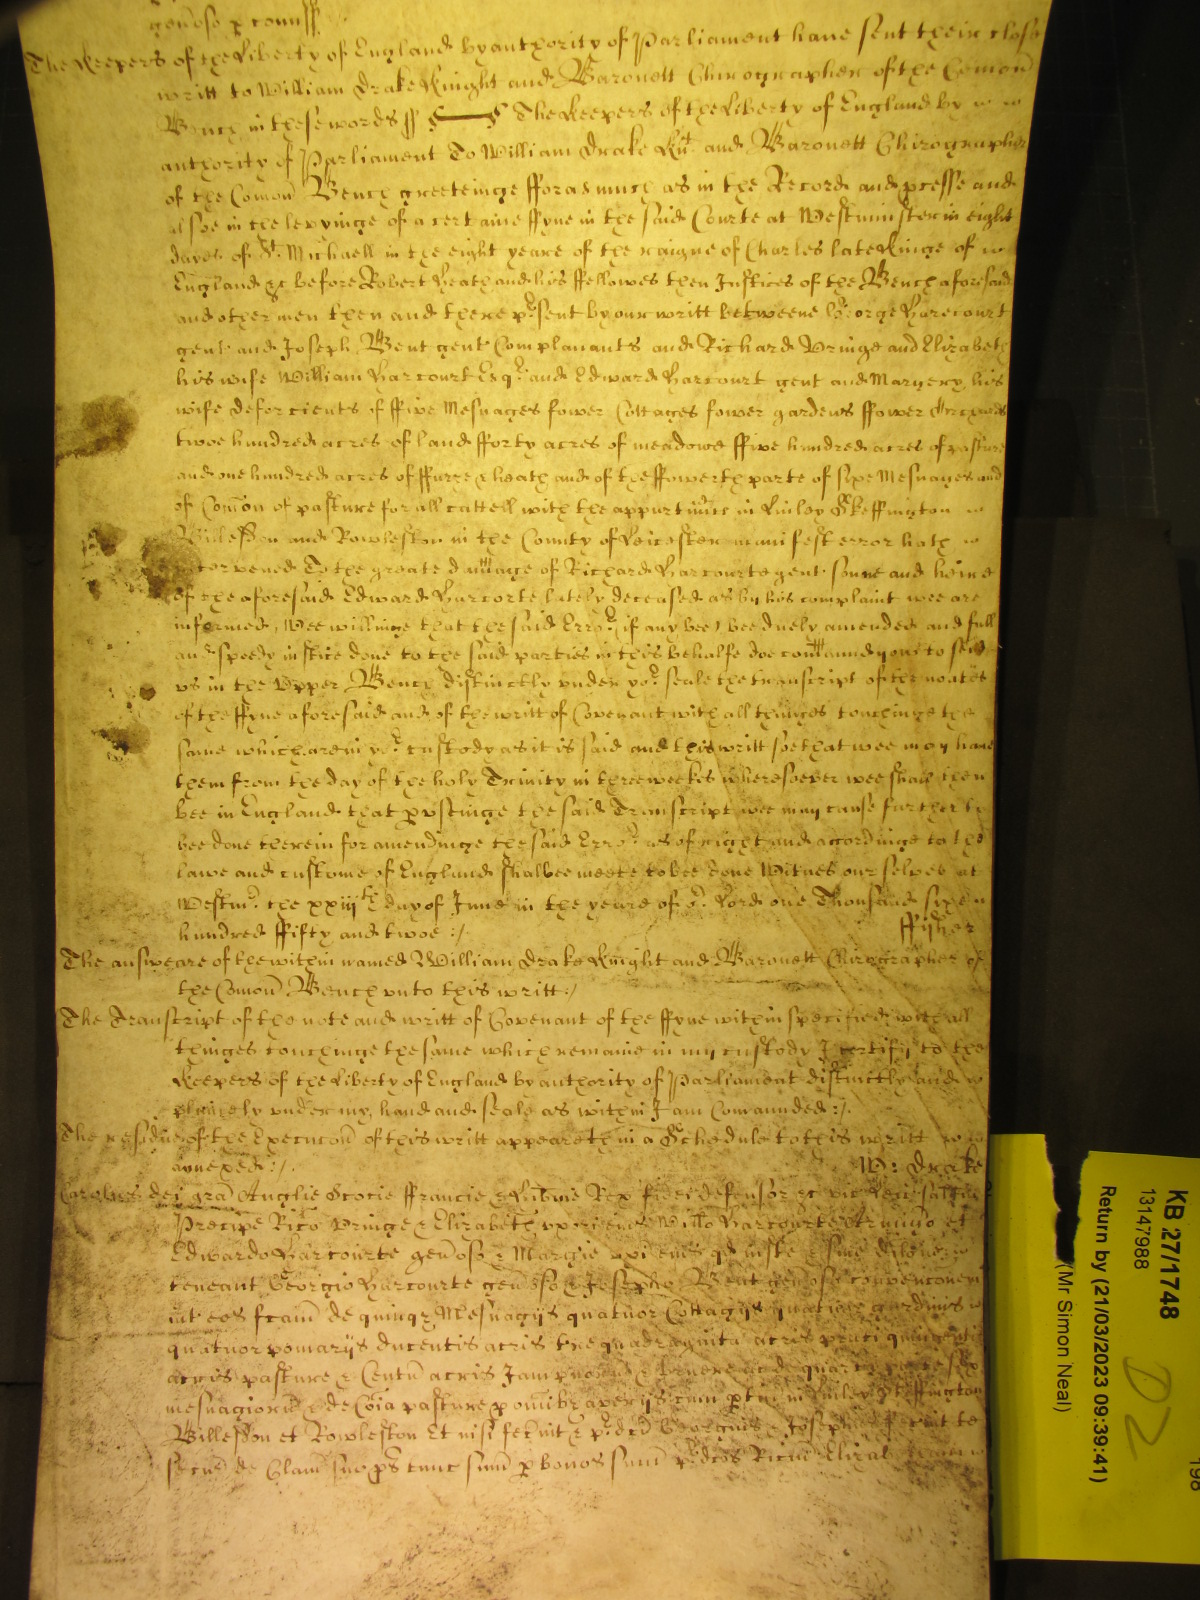 generoso p comiss
The Keepers of the Liberty of England by authority of Parliament have sent their close
writt to William Drake Knight and Baronett Chirographer of the Comon
Bench in these words ss The Keepers of the Liberty of England by
authority of Parliament To William Drake Knt. and Baronett Chirographer
of the Comon Bench greeteinge fforasmuch as in the Record and pcesse and
alsoe in the levyinge of a certaine ffyne in the said Courte at Westminster in eight
dayes of St. Michaell in the eight yeare of the raigne of Charles late Kinge of
England &c before Robert Heath and his ffellowes then Justices of the Bench aforesaid
and other men then and there psent by our writt betweene George Harecourt
gent and Joseph Bent gent Complanants and Richard Pringe and Elizabeth
his wife William Harcourt Esqr. and Edward Harcourt gent and Margery his
wife deforcients of ffive Mesuages fower Cottages fower gardens ffower Orchards
twoe hundred acres of land fforty acres of meadowe ffive hundred acres of pasture
and one hundred acres of ffurze & heath and of the ffowerth parte of sixe Mesuages and
of Comon of pasture for all cattell with the appurtnncs in Skeffington
Billesdon and Rowleston in the County of Leicester manifest error hath
intervened To the greate damage of Richard Harcourte gent sonne and heire
of the aforesaid Edward Harcorte lately deceased as by his complaint wee are
informed, Wee willinge that the said Error (if any bee) bee duely amended and full
and speedy iustice done to the said parties in this behalfe doe comaund you to send
vs in the Vpper Bench distinctly vnder yor. seale the transcript of the noates
of the ffyne aforesaid and of the writt of Covenant with all thinges touchinge the
same which are in yor. custody as it is said and this writt soe that wee may have
them from the day of the holy Trinity in three weekes wheresoever wee shall then
bee in England that pvseinge the said Transcript wee may cause further to
bee done therein for amendinge the said Error. as of right and accordinge to the
lawe and custome of England shalbee meete to bee done Witnes our selves at
Westmr. the xxiijth day of June in the yeare of or. Lord one Thousand sixe
hundred ffifty and twoe :/ ffisher
The answeare of the within named William Drake Knight and Baronett Chirographer of
the Comon Bench vnto this writt :/
The Transcript of the note and writt of Covenant of the ffyne within specified with all
thinges touchinge the same which remaine in my custody I certify to the
Keepers of the Liberty of England by authority of Parliament distinctly and
plainely vnder my hand and seale as within I am Comaunded :/.
The residue of the Execucon of this writt appeareth in a Schedule to this writt
annexed :/. W: Drake
Carolus dei gra Anglie Scocie ffrancie & Hibnie Rex fidei defensor &c vic Leic saltm
Precipe Rico Pringe & Elizabeth vxori eius Willo Harcourte Armigo et
Edwardo Harcourte genoso & Margie vxi eius qd iuste & sine dilone
teneant Georgio Harcourte genoso & Josepho Bent genoso convenconem
int eos fcam de quinqz Mesuagijs quatuor Cottagijs quatuor gardinis
quatuor pomarijs ducentis acris tre quadraginta acris prati quingentis
acris pasture & Centu acris Jampnorum & bruere ac de quarta parte sex
mesuagiorum & de Coia pasture p omibz averijs cum ptin in Skeffington
Billesdon et Rowleston Et nisi fecint & pdcti Georgius & Josephus fecint te
secur de Clam suo ps tunc sum p bonos sum pdcos Ricum Elizab
KB 27/1748
13147988
Return by (21/03/2023 09:39:41)
(Mr Simon Neal)
D2
198